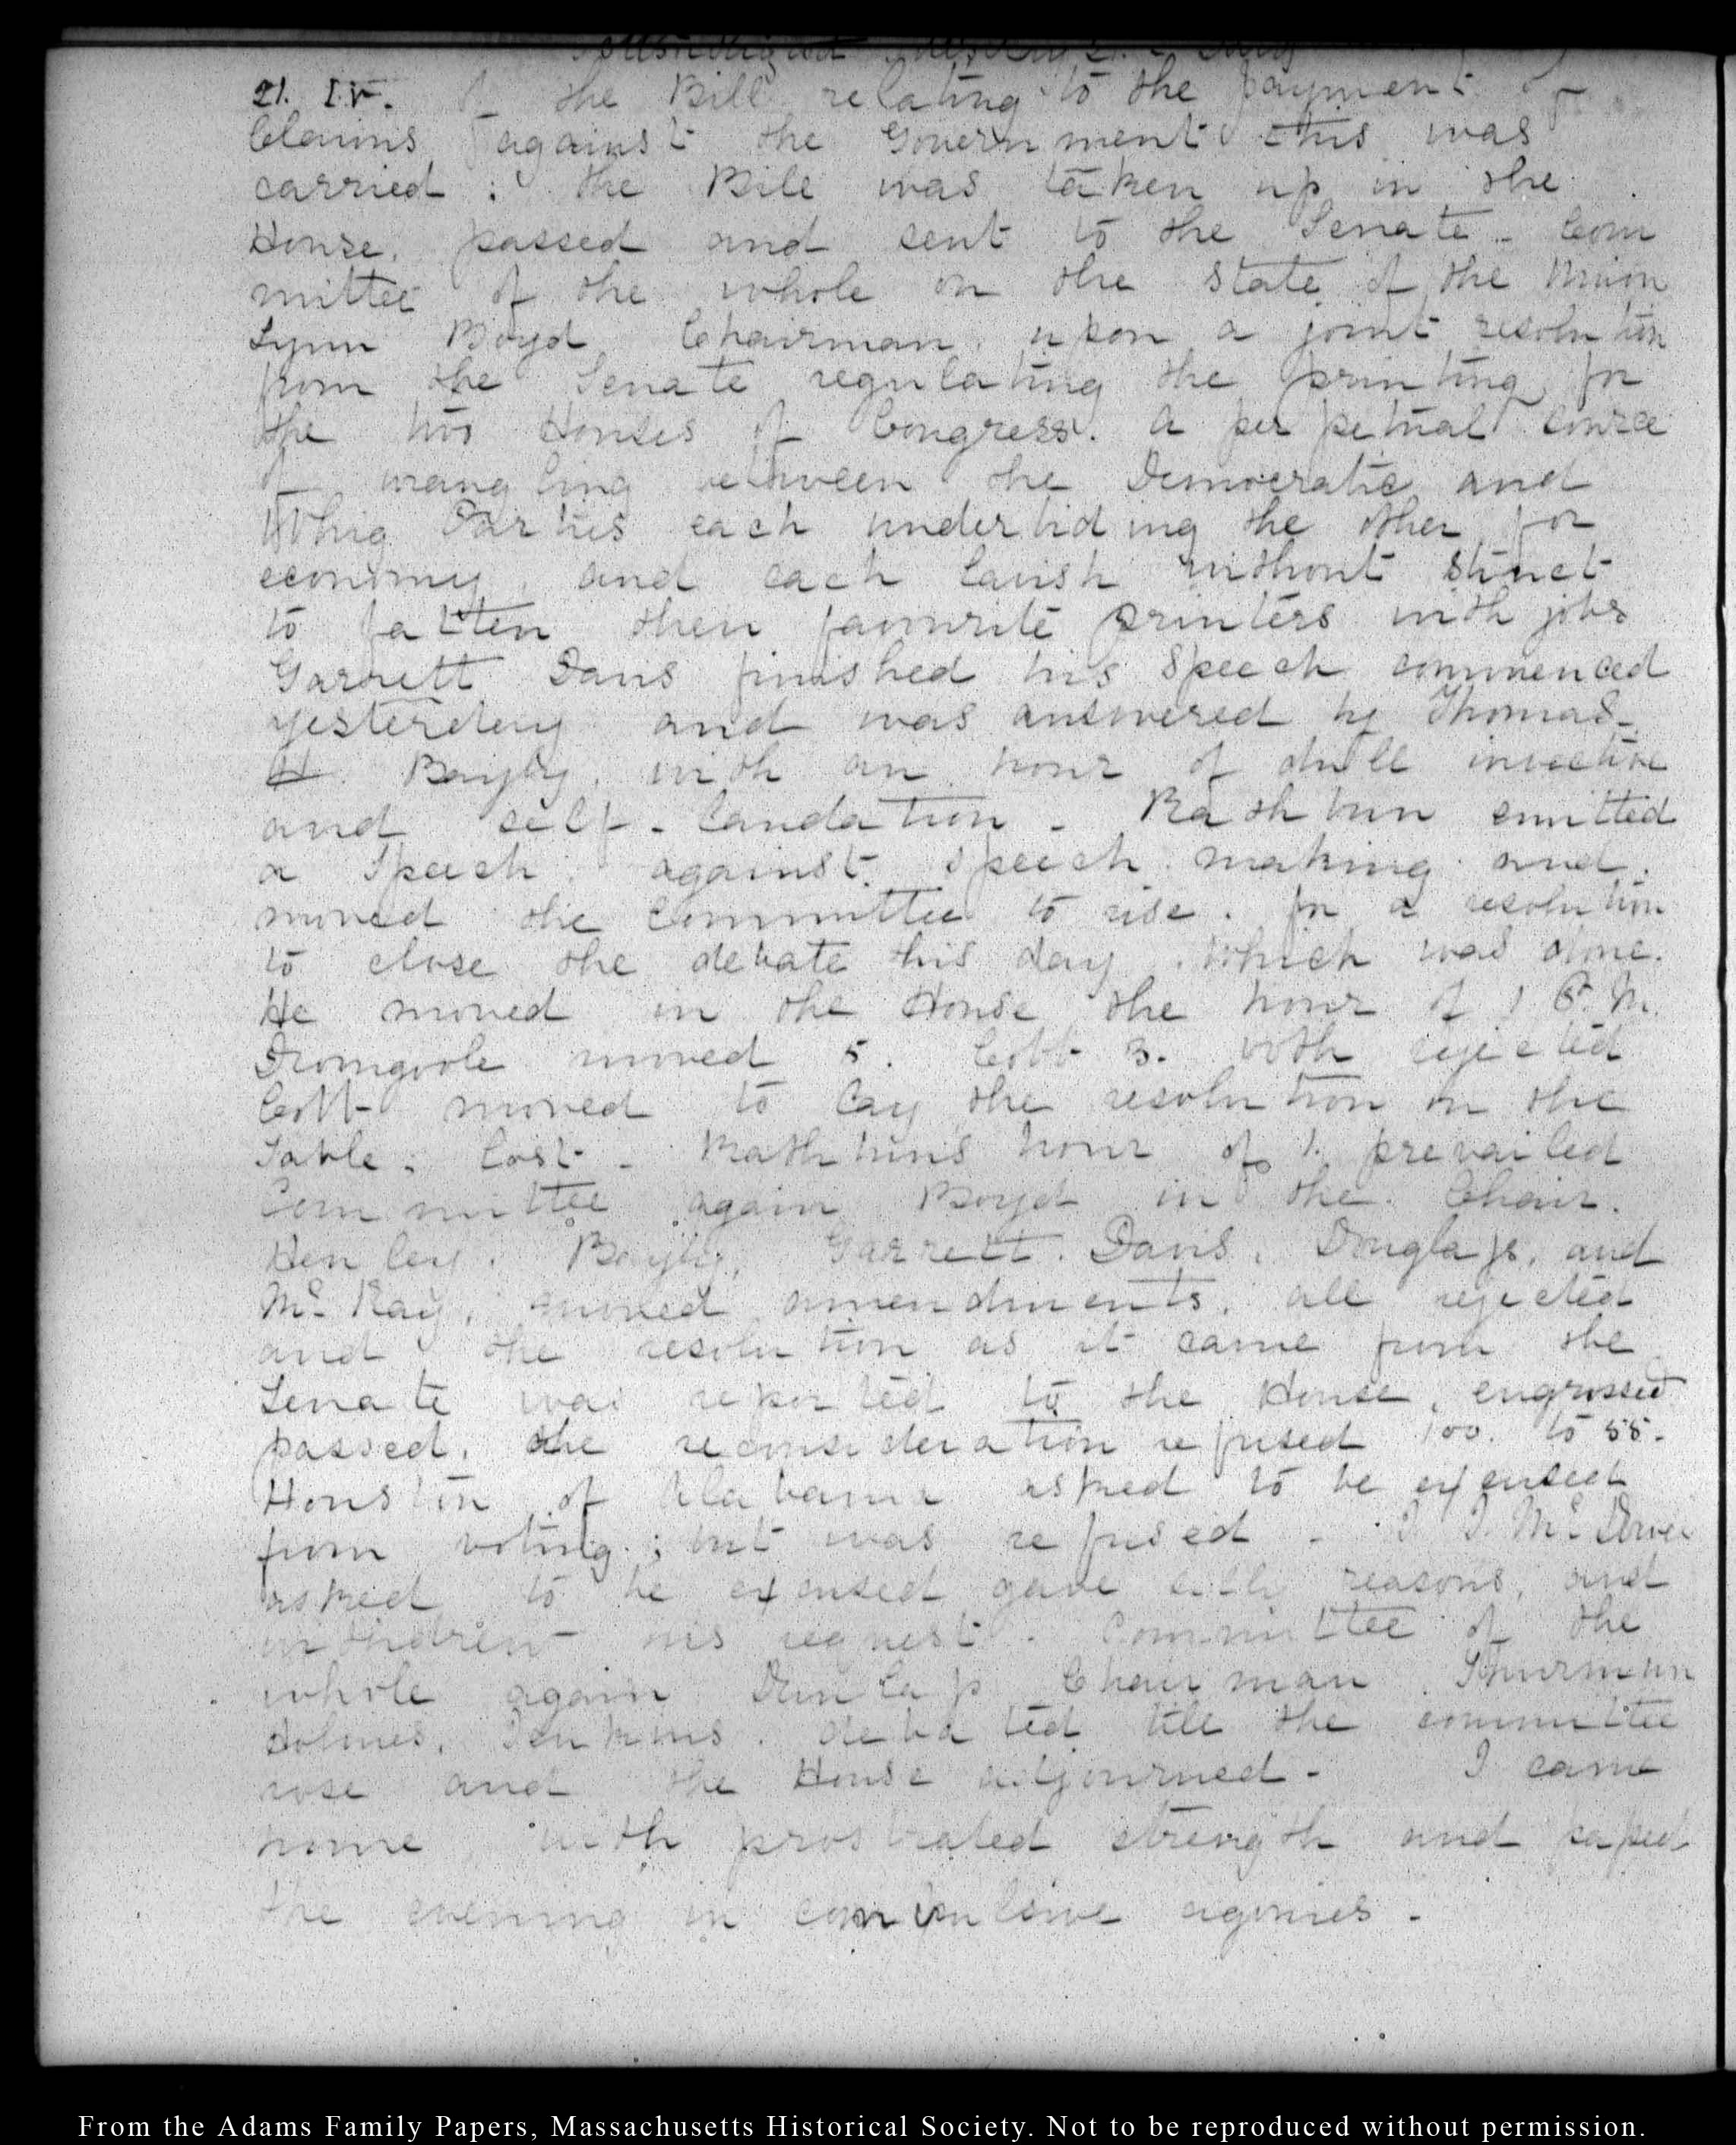 21. IV. of the Bill relating to the payment of
Claims against the Government this was
carried: the Bill was taken up in the
House, passed and sent to the Senate - Com
mittee of the whole on the state of the Union
Lynn Boyd Chairman, upon a joint resolution
from the Senate regulating the printing for
the two Houses of Congress. a perpetual source
of wrangling between the Democratic and
Whig Parties each underbidding the other for
economy, and each lavish without stinct
to fatten their favourite printers with jobs
Garrett Davis finished his Speech commenced
yesterday and was answered by Thomas
H. Bayly, with an hour of dull invective
and self-laudation - Rathbun emitted
a Speech against speech making and
moved the Committee to rise. for a resolution
to close the debate this day, which was done.
He moved in the House the hour of 1 P.M.
Dromgoole moved 5. Cobb 3. both rejected
Cobb moved to lay the resolution on the
Table: lost - Rathbuns hour of 1. prevailed
Committee again Boyd in the Chair.
Henley, Bayly, Garrett Davis, Douglass, and
Mc Kay, moved amendments, all rejected
and the resolution as it came from the
Senate was reported to the House, engrossed
passed, the reconsideration refused 100. to 55.
Houston of Alabama asked to be excused
from voting; but was refused -
asked to be excused gave silly reasons, and
withdrew his request. Committee of the
whole again Dunlap Chairman. Thurman
Holmes, Jenkins, debated till the committee
rose and the House adjourned - I came
home with prostrated strength and passed
the evening in convulsive agonies -
From the Adams Family Papers, Massachusetts Historical Society. Not to be reproduced without permission.